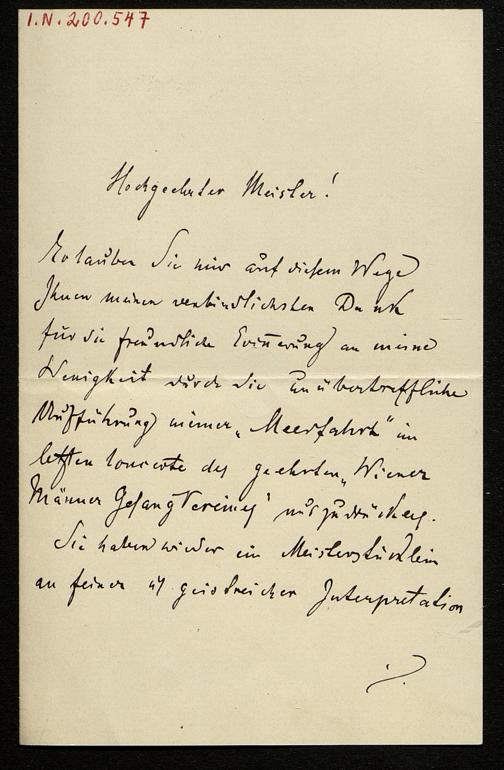 I.N. 200.547
Hochgeehrter Meister!
Erlauben Sie mir auf diesem Wege
Ihnen meinen verbindlichsten Dank
für die freundliche Erinnerung an meine
Wenigkeit durch die unübertreffliche
Aufführung meiner „Meerfahrt" im
letzten Concerte des geehrten „Wiener
Männer Gesang Vereines" auszudrücken.
Sie haben wieder ein Meisterstücklein
an feiner u. geistreicher Interpretation